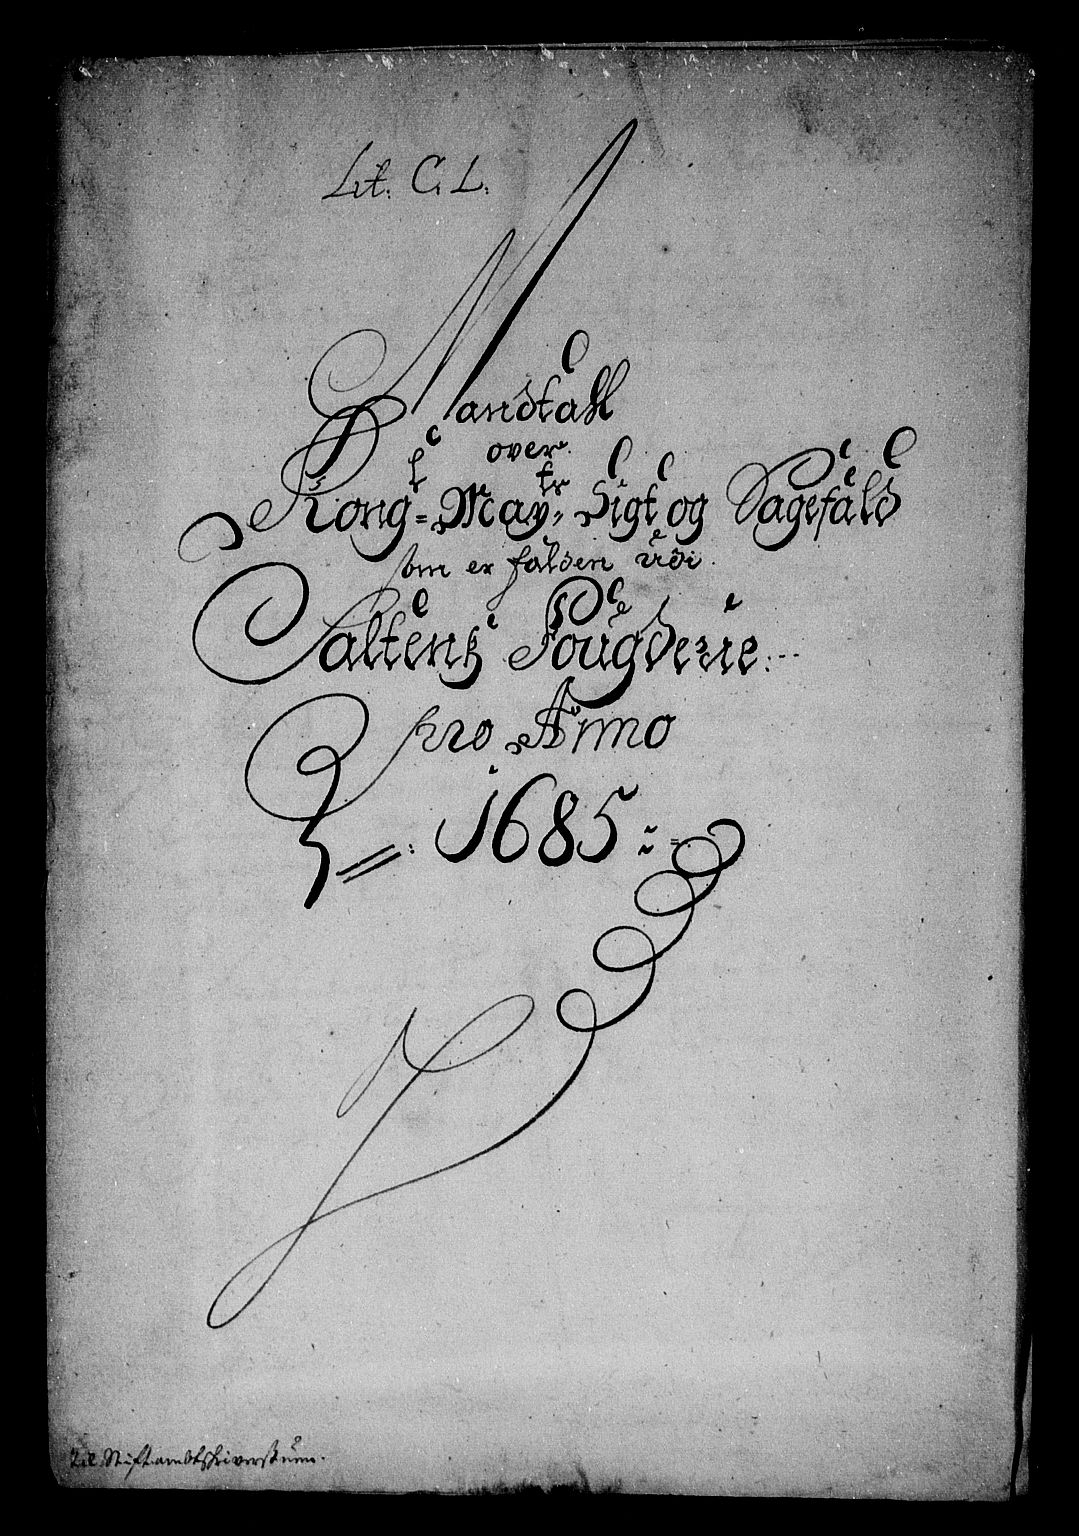 Lit. C. L.
Mandtall
over
Kong=l May,tr Sigt og Sagefald
som er falden udi
Saltens Fougderie
pro Anno
1685
til Stiftambtschriverstuen.